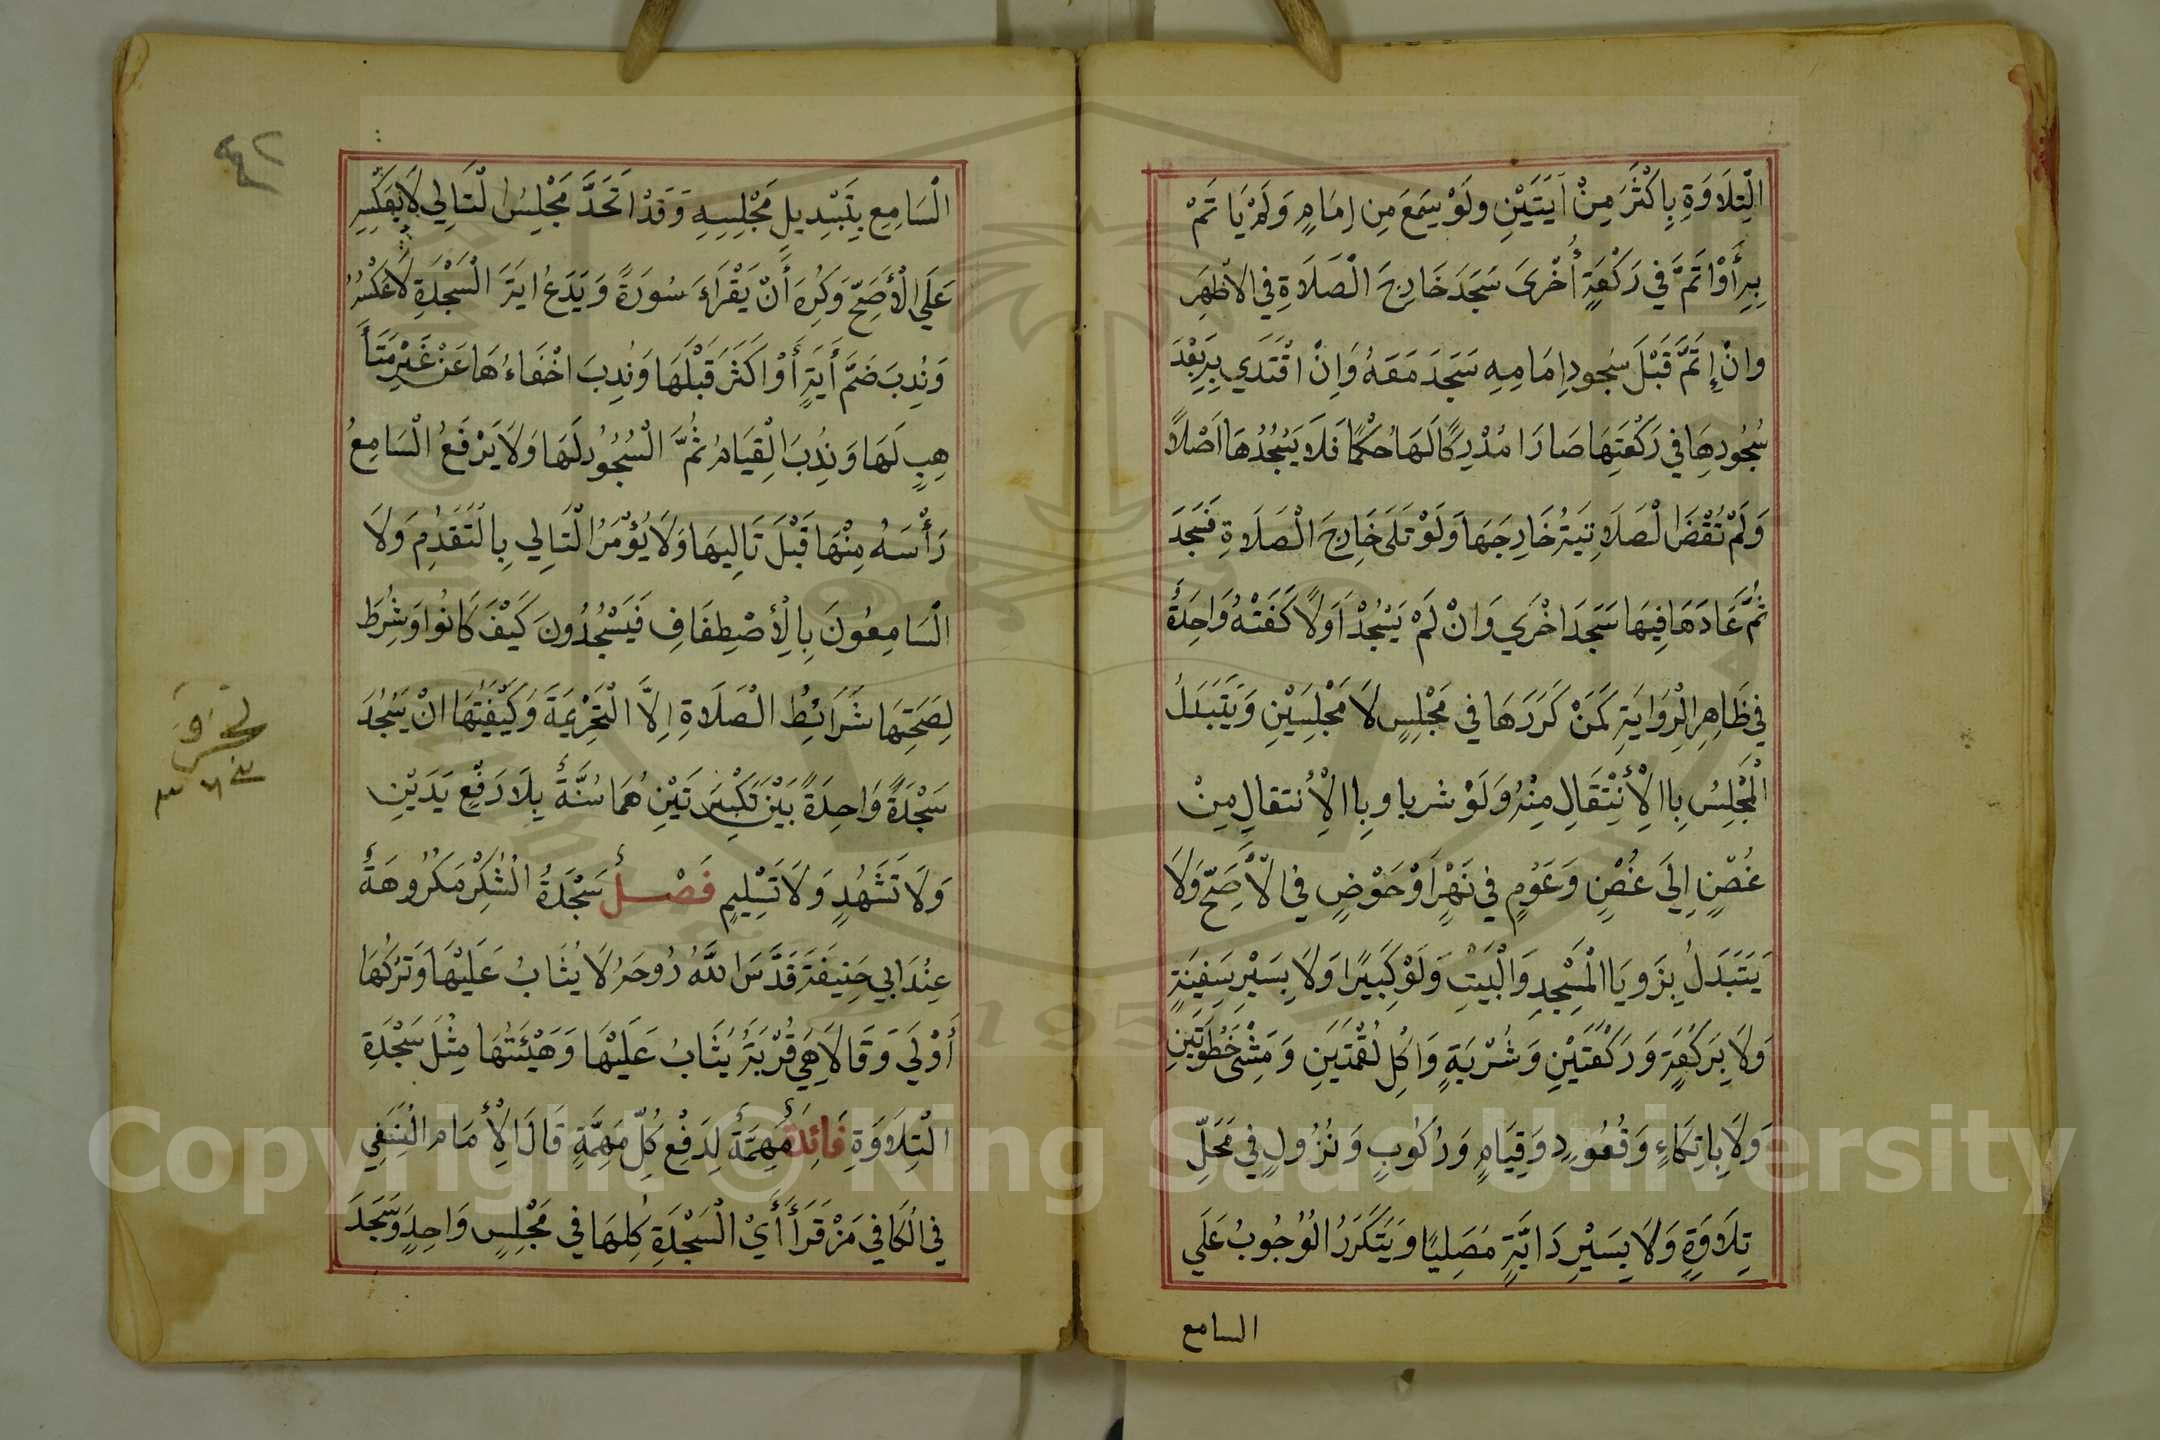 الْتِلَاوَةِ بِاكْثَرَ مِنْ اَيَتَيْنِ ولَوْ سَمِعَ مِن اِمَامٍ وَلَمْ يَا تَمْ
بِهِ أَوْ اتَمَّ فِي رَكْعَةٍ أُخْرَى سَجَدَ خَارِجَ الْصَلَاةِ فِي الاظْهَرِ
وانْ إتَمَّ قَبْلَ سُجودِ اِمَامِهِ سَجَدَ مَعَهُ وَاِنْ اقْتَدَي بِهِ بَعْدَ
سُجُودِهَا فِي رَكْعَتِهَا صَارَا مُدْرِكًا لَهَا حُكْمًا فَلَا يَسْجُدُهَا اَصْلًا
وَلَمْ تُقْضَ الْصَلَاتِيَةُ خَارِجَهَا وَلَوْ تَلَى خَارِجَ الْصَلَاةِ فَسَجَدَ
ثُمَّ عَادَهَا فِيهَا سَجَدَ اخْرَي وَانْ لَمْ يَسْجُدْ اَوَلًا كَفَتْهُ وَاحِدَةٌ
فِي ظَاهِرِ الْرِوَايَةِ كَمَنْ كَرَرَهَا فِي مَجْلِسٍ لَا مَجْلِسَيْنِ وَيَتَبَدَلُ
الْمَجْلِسُ بِاالْأِنْتِقَالِ مِنْهُ وَلَوْ شربا وبِاالْأِنتقالِ مِنْ
غُصْنٍ اِلَي غُصْنٍ وَعَوْمٍ فِي نَهْرٍ اَوْ حَوْضٍ فِي الْأَصَحِّ وَلَا
يَتَبَدَلُ بِزَوِيَا الْمَسْجِدِ وَالْبَيْتِ وَلَوْ كَبِيرًا وَلَا بِسَيْرِ سَفِينَةٍ
وَلَا بِرَكْعَةٍ وَرَكْعَتَيْنِ وَشُرْبَةٍ وَاكْلِ لُقْمَتَيْنِ وَمَشْيِ خُطْوَتَيْنِ
وَلَا بِاتِكَاءٍ وَقُعُودٍ وَقِيَامٍ وَرُكُوبٍ وَنُزُولٍ فِي مَحَلِّ
تِلَاوَةٍ وَلَا بِسَيْرِ دَابَّةٍ مُصَلِيًا وَيَتَكَرَرُ الْوُجُوبُ عَلَي
السامع
الْسَامِعِ بِتَبْدِيلِ مَجْلِسِهِ وَقَدْ اتَحَدَّ مَجْلِسُ الْتَالِي لَا بِعَكْسِهِ
عَلَي الْأَصَحِّ وَكُرِهَ أَنْ يَقْرَاءَ سُورَةً وَيَدَعُ ايَةَ الْسَجْدَةِ لَا عَكْسُهُ
وَنُدِبَ ضَمَّ أَيَةٍ أَوْ اَكَثَرَ قَبْلَهَا وَنُدِبَ اخْفَاءُهَا عَنْ غَيْرِ مُتَأَ
هِبٍ لَهَا وَنُدِبَ الْقِيَامُ ثُمَّ الْسُجُودُ لَهَا وَلَا يَرْفَعُ الْسَامِعُ
رَأْسَهُ مِنْهَا قَبْلَ تَالِيهَا وَلَا يُؤْمَرُ الْتَالِي بِالْتَقَدُمِ وَلَا
الْسَامِعُونَ بِالْأِصْطِفَافِ فَيَسْجُدُونَ كَيْفَ كَانُوا وَشُرِطَ
لِصَحَتِهَا شَرَائِطُ الْصَلَاةِ اِلَّا الْتَحْرِيمَةَ وَكَيْفِيَتُهَا انْ يَسْجُدَ
سَجْدَةً وَاحِدَةً بَيْنَ تَكْبِيرَتَيْنِ هُمَا سُنَّةٌ بِلَا رَفْعِ يَدَيْنِ
وَلَا تَشَهُدٍ وَلَا تَسْلِيمٍ فَصْلٌ سَجْدَةُ الْشُكْرِ مَكْرُوهَةٌ
عِنْدَ ابِي حَنِيفَةَ قَدَّسَ اللَّهُ رُوحَهُ لَا يُثَابُ عَلَيْهَا وَتَرْكُهَا
أَوْلَي وَقَالَا هِيَ قُرْبَةٌ يُثَابُ عَلَيْهَا وَهَيْئَتُهَا مِثْلَ سَجْدَةِ
الْتِلَاوَةِ فَائِدَةٌ مُهِمَّةٌ لِدَفْعِ كُلِّ مُهِمَّةٍ قَالَ الْأِمَام الْنَسَفِي
فِي الْكَافِي مَنْ قَرَأَ أَيْ الْسَجْدَةِ كُلِهَا فِي مَجْلِسٍ وَاحِدٍ وَسَجَدَ
Copyright © King Saud University